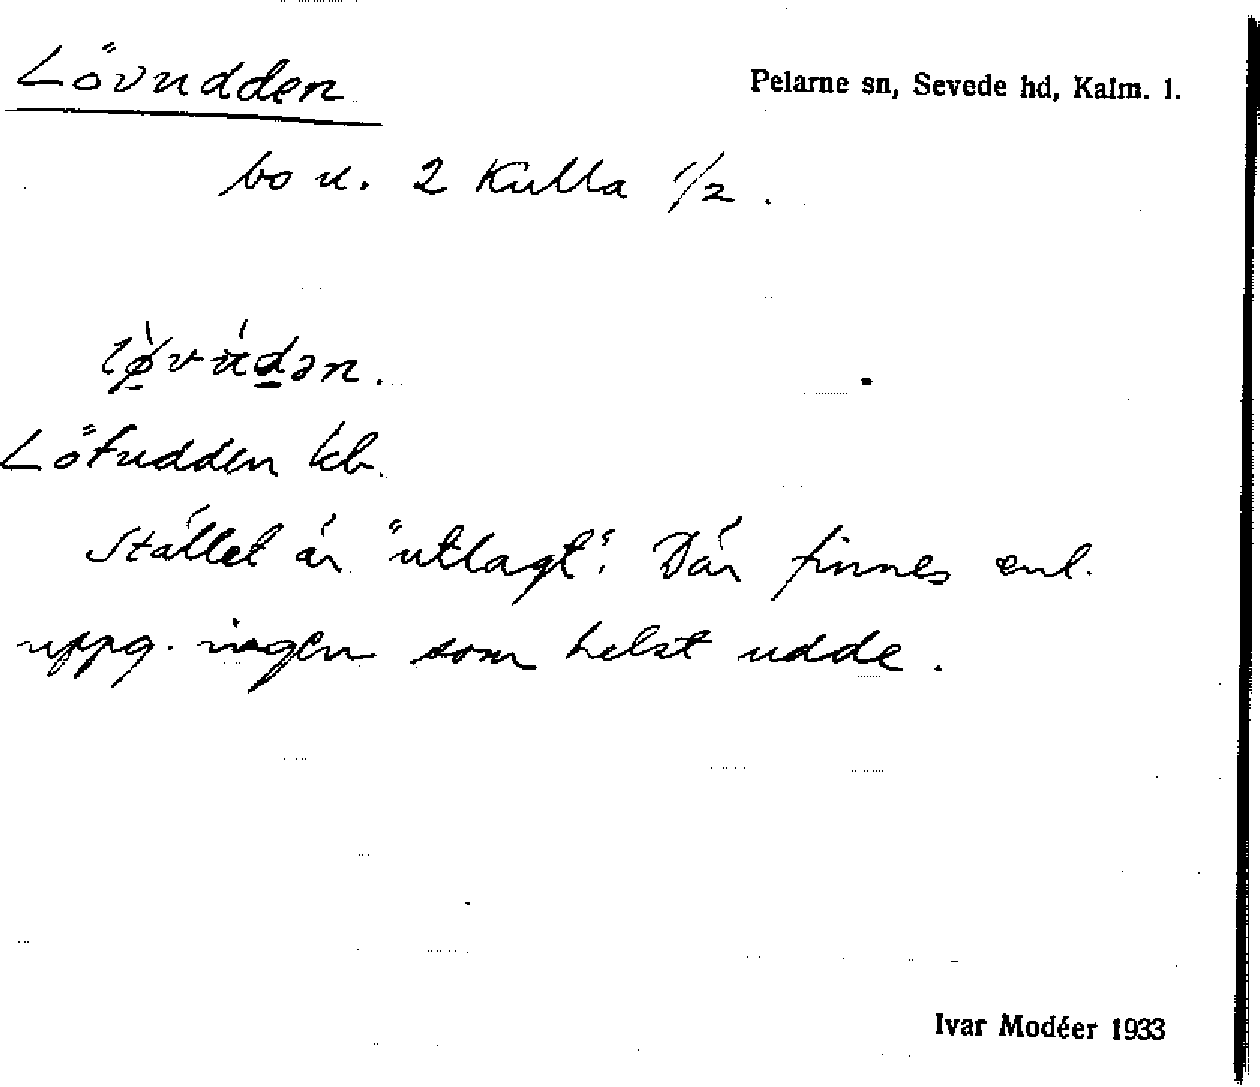 Lövudden
Pelarne sn, Sevede hd, Kalm. l.
bo u. 2 Kulla 1/2.
lø̀vúdən.
Löfudden kb.
Stället är "utlagt". Där finnes enl.
uppg. ingen som helst udde.
Ivar Modéer 1933